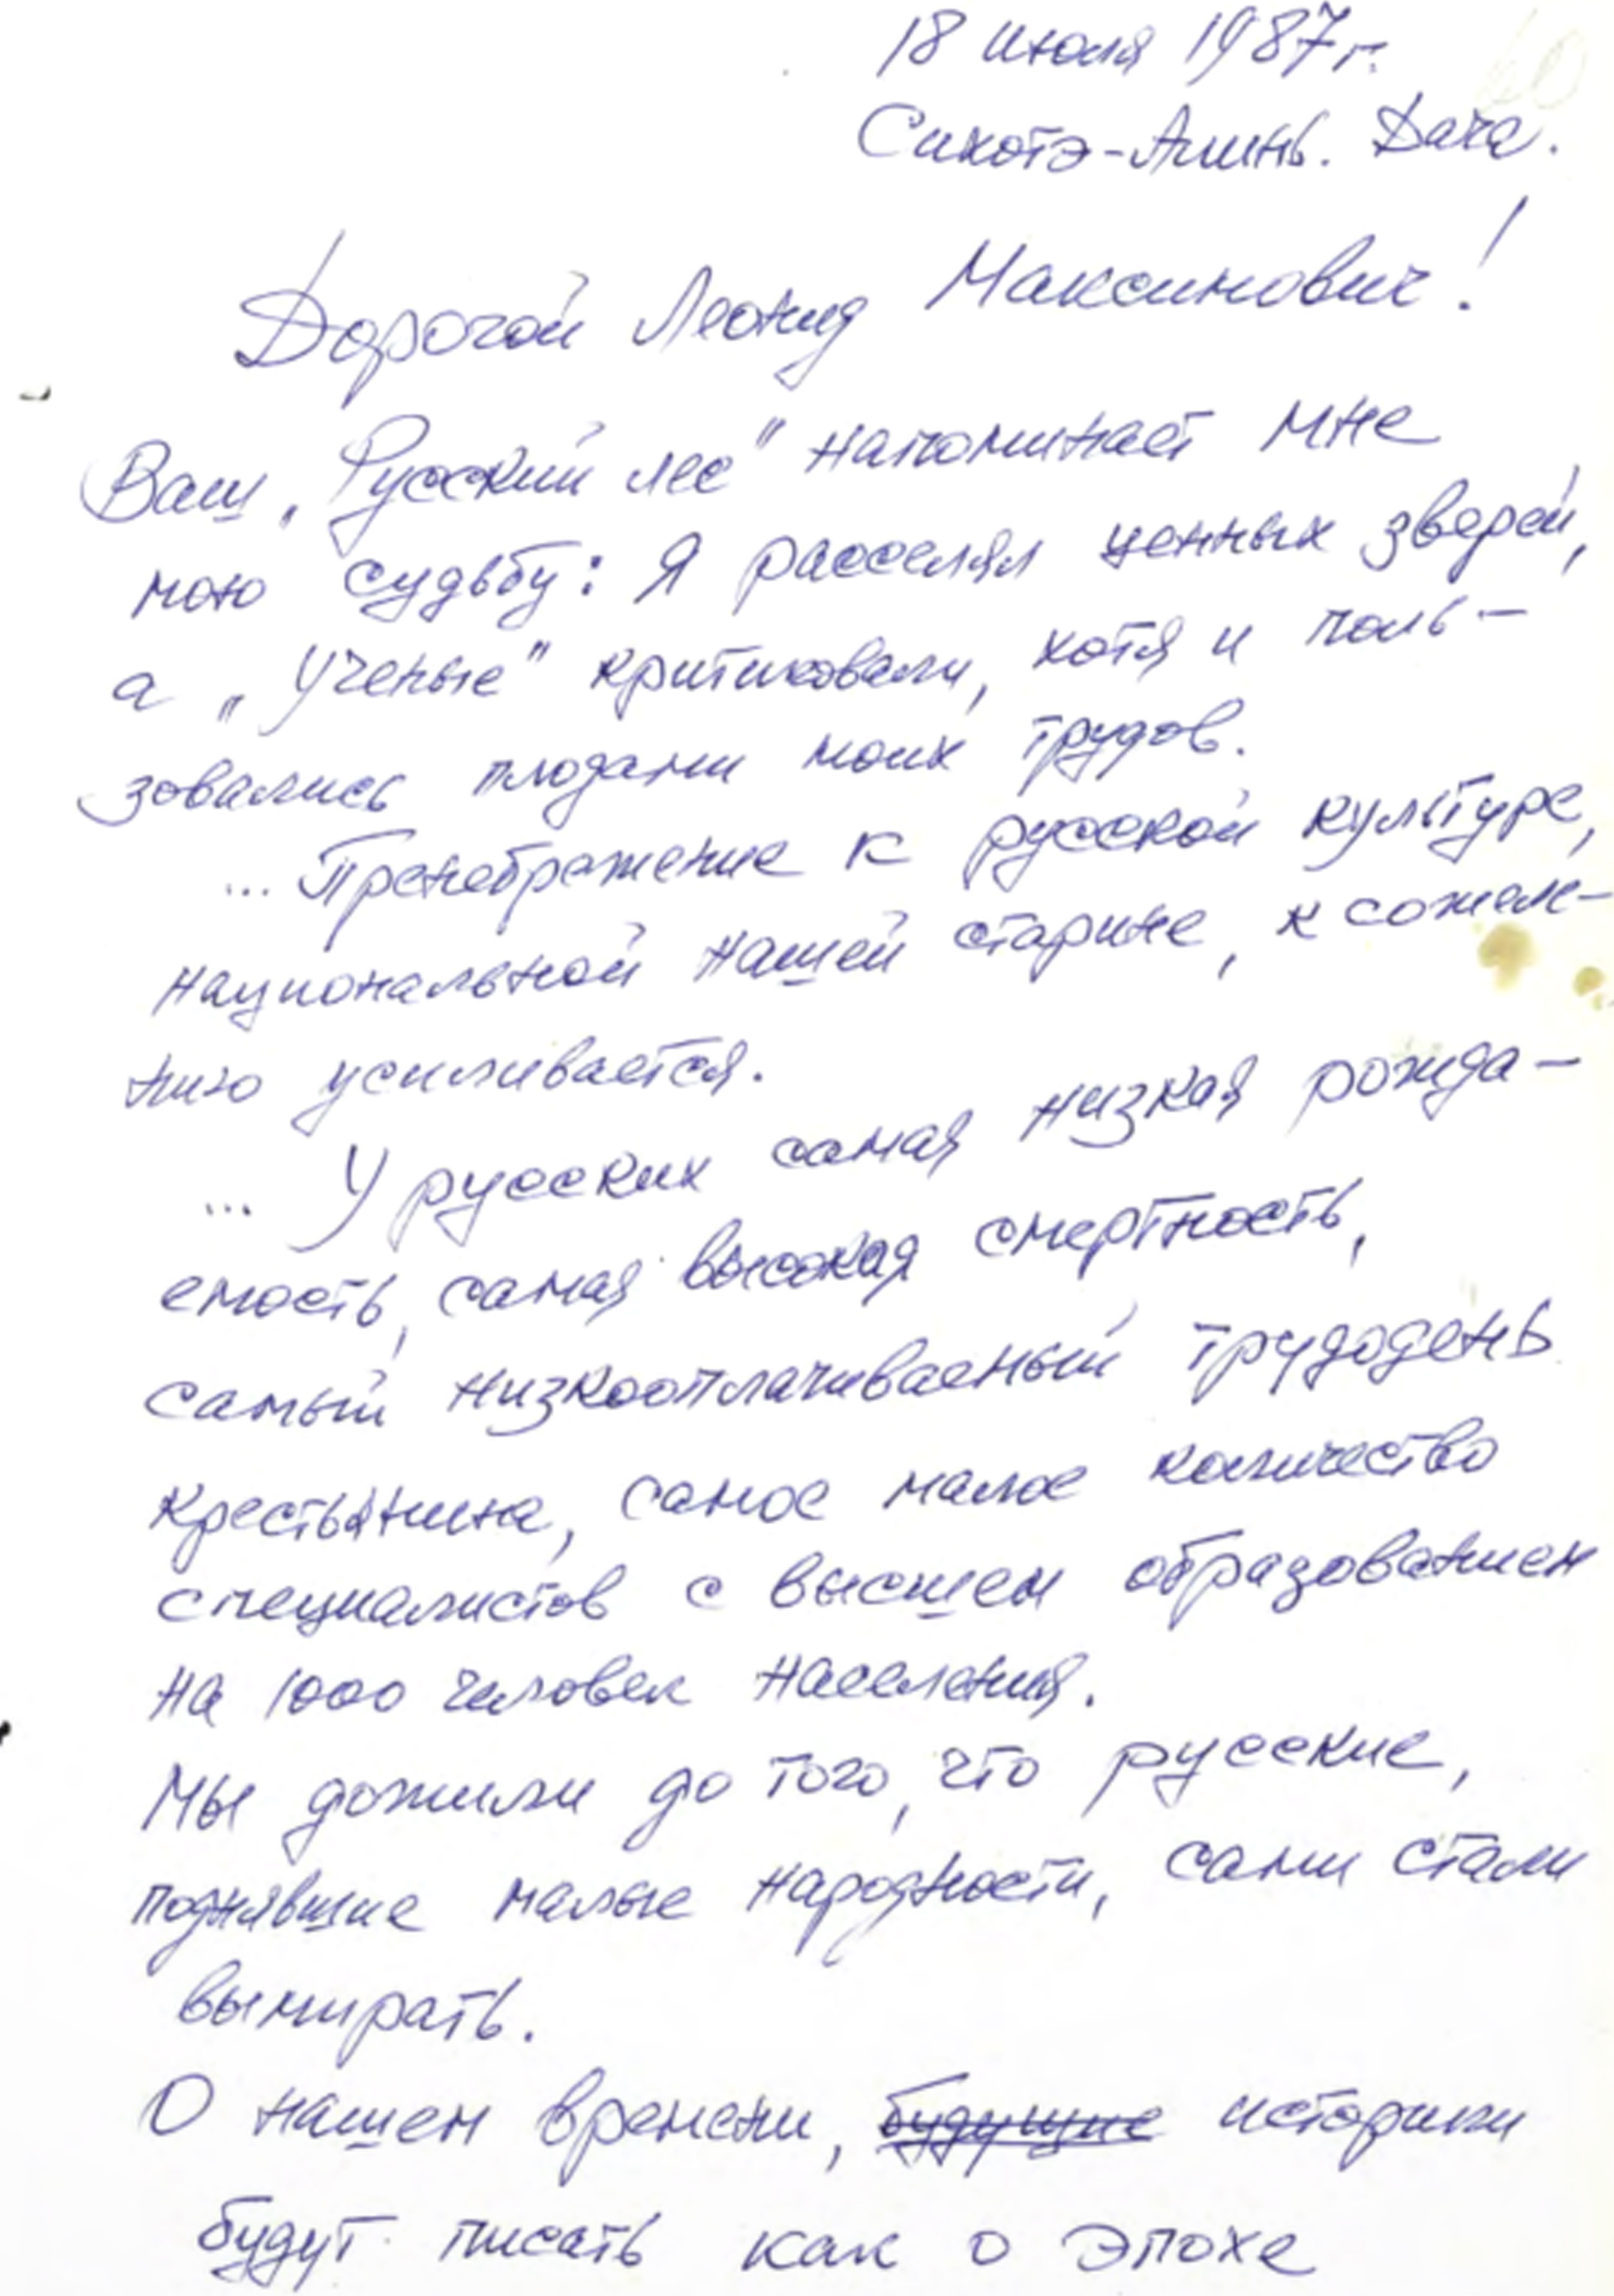 18 июля 1987 г.
Сихотэ-Алинь. Дача.
Дорогой Леонид Максимович!
Ваш „Русский лес" напоминает мне
мою судьбу: Я расселял ценных зверей,
а „Ученые" критиковали, хотя и поль-
зовались плодами моих трудов.
... Пренебрежение к русской культуре,
национальной нашей старине, к сожале-
нию усиливается.
... У русских самая низкая рожда-
емость, самая высокая смертность,
самый низкооплачиваемый трудодень
крестьянина, самое малое количество
специалистов с высшем образованием
на 1000 человек населения.
Мы дожили до того, что русские,
поднявшие малые народности, сами стали
вымирать.
О нашем времени, будущие историки
будут писать как о эпохе